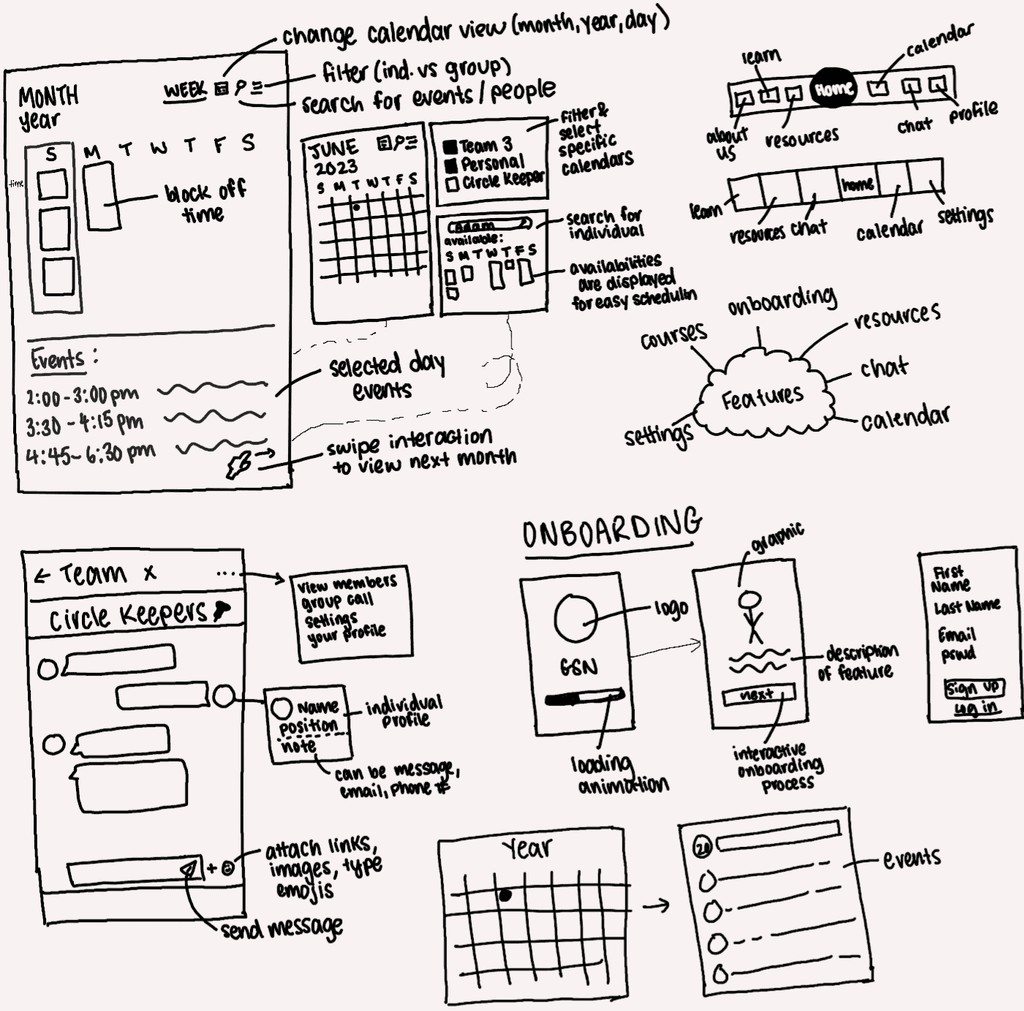 change calendar view (month, year, day)
filter (ind. vs group)
search for events / people
MONTH
year
WEEK
S M T W T F S
time
block off
time
Events:
2:00 - 3:00 pm
3:30 - 4:15 pm
4:45 - 6:30 pm
selected day
events
swipe interaction
to view next month
JUNE
2023
S M T W T F S
Team 3
Personal
Circle Keeper
filter &
select
specific
calendars
available:
S M T W T F S
search for
individual
availabilities
are displayed
for easy schedulin
learn
calendar
Home
about
us
resources
chat
profile
home
learn
resources
chat
calendar
settings
onboarding
courses
resources
Features
chat
settings
calendar
← Team x ...
Circle Keepers
view members
group call
settings
your profile
Name
position
note
individual
profile
can be message,
email, phone #
+
attach links,
images, type
emojis
send message
ONBOARDING
logo
GSN
loading
animation
graphic
description
of feature
next
interactive
onboarding
process
First
Name
Last Name
Email
pswd
sign up
Log in
Year
20
events